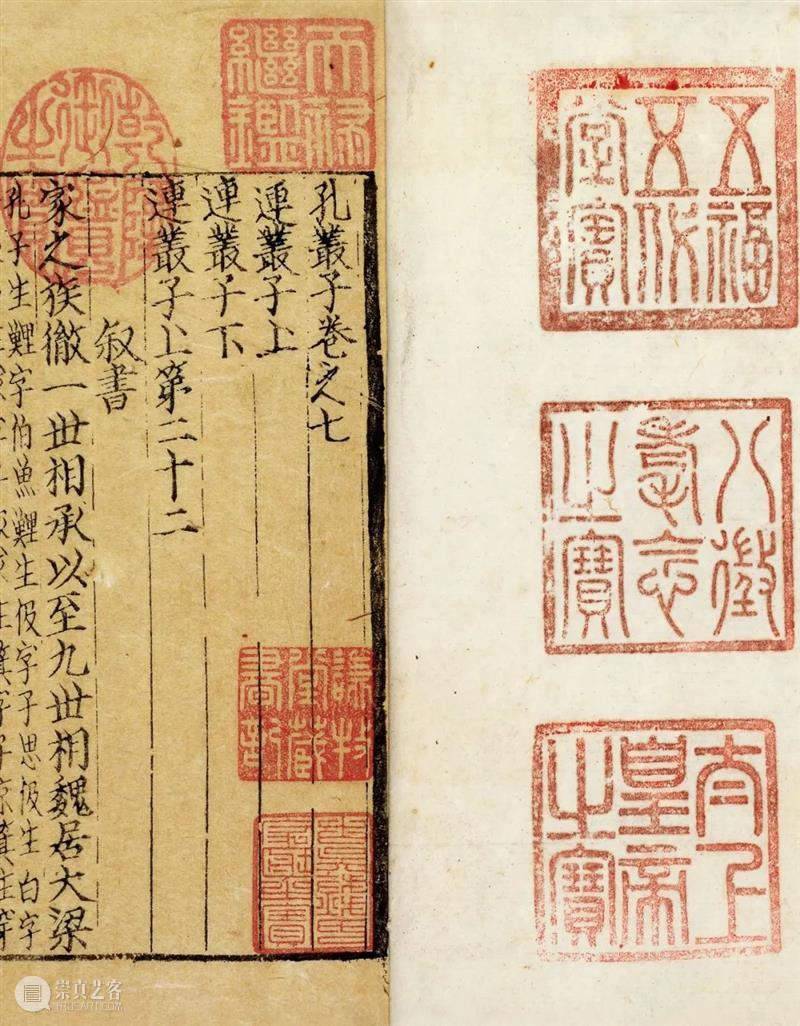 五福
五代
堂寶
八徵
耄念
之寶
太上
皇帝
之寶
天祿
繼鑑
乾隆
御覽
之寶
孔叢子卷之七
連叢子上
連叢子下
連叢子上第二十二
叙書
家之族徹一世相承以至九世相魏居大梁
孔子生鯉字伯魚鯉生伋字子思伋生白字
謙牧
堂藏
書記
崇真艺客